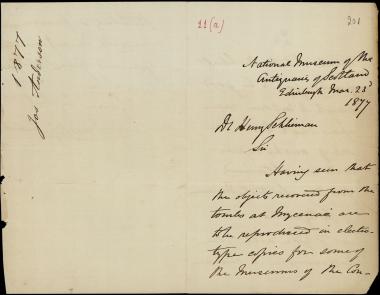 1877
Jos Anderson
11(a)
201
National Museum of the
Antiquaries of Scotland
Edinburgh Mar. 23d
1877
Dr Henry Schlieman
Sir
Having seen that
the objects recovered from the
tombs at Mycenae are
to be reproduced in electro-
type copies for some of
the Museums of the Con-